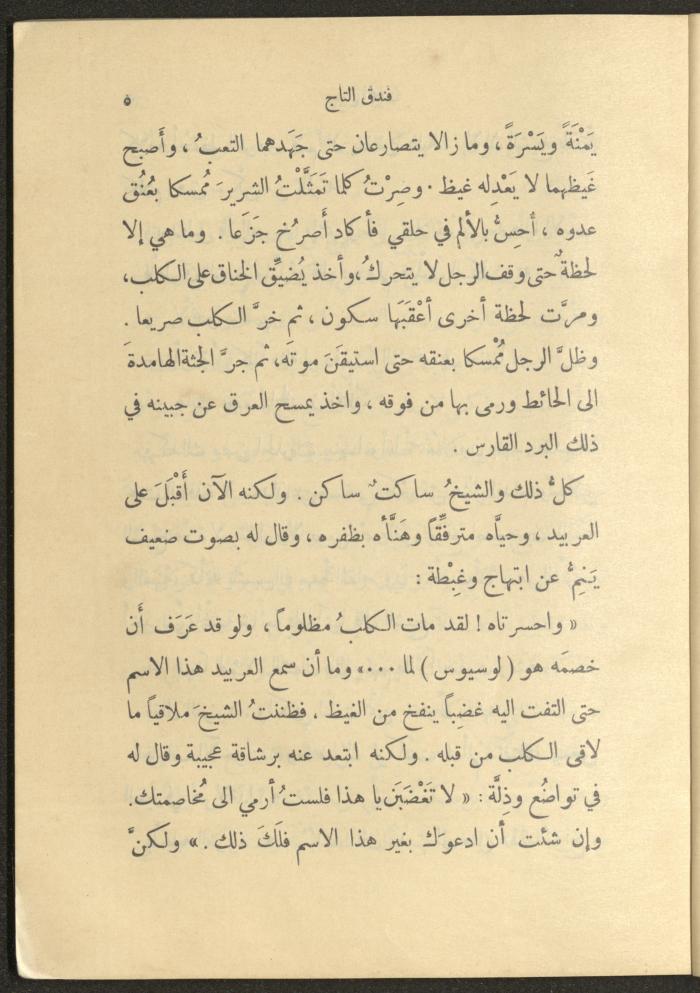 فندق التاج ٥
يَمْنَةً ويَسْرَةً ، وما زالا يتصارعان حتى جَهَدهما التعبُ ، وأَصبح
غَيظهما لا يَعْدِله غيظ . وصِرْتُ كلما تَمَثَّلْتُ الشريرَ مُمسكا بعُنُق
عدوه ، أحِسُّ بالألم في حلقي فأ كاد أَصرُخ جَزَعا . وما هي إلا
لحظةٌ حتى وقف الرجل لا يتحركُ، وأخذ يُضيِّق الخناق على الكلب،
ومرَّت لحظة أخرى أعْقَبَها سكون ، ثم خرَّ الكلب صريعا .
وظلَّ الرجل مُمْسكا بعنقه حتى استيقَنَ موتَه، ثم جرَّ الجثة الهامدةَ
الى الحائط ورمى بها من فوقه ، واخذ يمسح العرق عن جبينه في
ذلك البرد القارس .
كلُّ ذلك والشيخُ ساكتٌ ساكن . ولكنه الآن أَقْبَلَ على
العربيد ، وحيَّاه مترفِّقاً وهَنَّأه بظفره ، وقال له بصوت ضعيف
يَنِمُّ عن ابتهاج وغِبْطة :
« واحسرتاه ! لقد مات الكلبُ مظلوماً ، ولو قد عَرَف أَن
خصمَه هو ( لوسيوس ) لما ...» وما أن سمع العربيد هذا الاسم
حتى التفت اليه غضِباً ينفخ من الغيظ ، فظننتُ الشيخَ ملاقياً ما
لاقى الكلب من قبله . ولكنه ابتعد عنه برشاقة عجيبة وقال له
في تواضُع وذِلَّة : « لا تَغْضَبَنَّ يا هذا فلستُ أرمي الى مُخاصمتك.
وإن شئت أن ادعوَك بغير هذا الاسم فلَكَ ذلك . » ولكنَّ